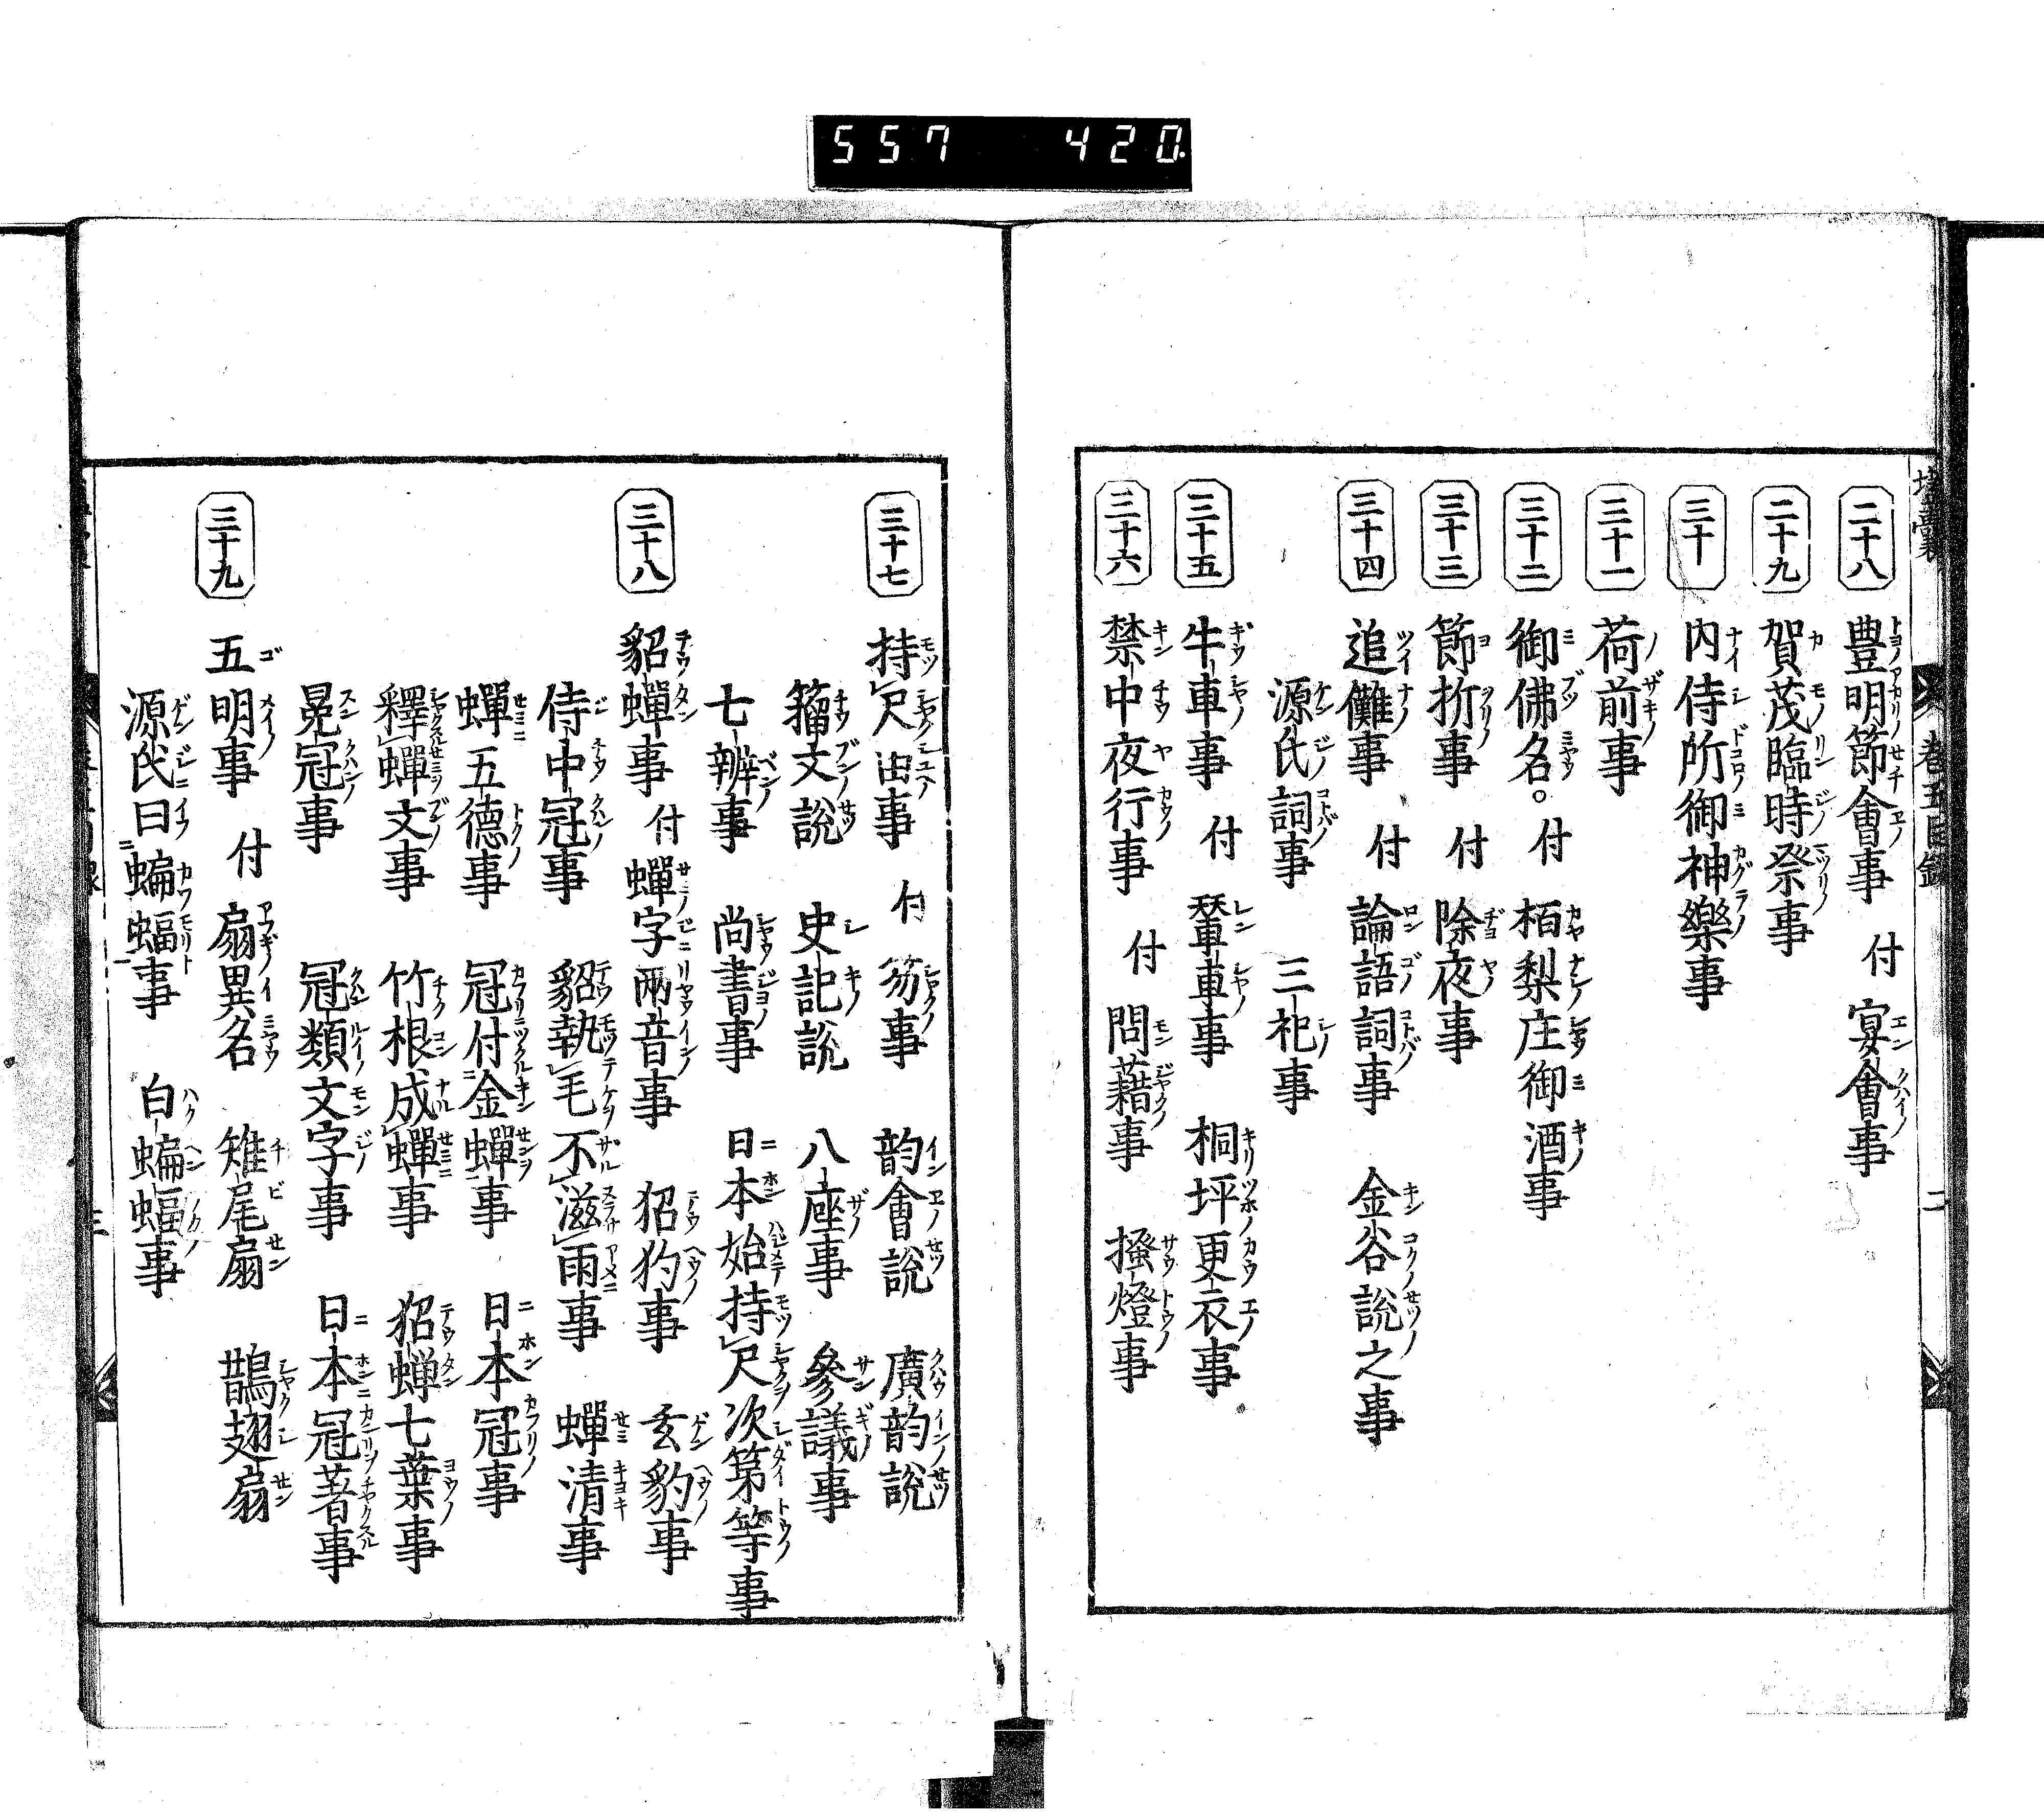 557 420.
二十八 豊明節會事 付 宴會事
二十九 賀茂臨時祭事
三十 内侍所御神樂事
三十一 荷前事
三十二 御佛名。付 栢梨庄御酒事
三十三 節折事 付 除夜事
三十四 追儺事 付 論語詞事 金谷説之事
源氏詞事 三祀事
三十五 牛車事 付 輦車事 桐坪更衣事
三十六 禁中夜行事 付 問藉事 搔燈事
三十七 持尺由事 付 笏事 韵會説 廣韵説
籀文説 史記説 八座事 參議事
七辨事 尚書事 日本始持尺次第等事
三十八 貂蟬事 付 蟬字兩音事 犳事 玄豹事
侍中冠事 貂執毛不滋雨事 蟬清事
蟬五德事 冠付金蟬事 日本冠事
釋蟬文事 竹根成蟬事 貂蟬七葉事
冕冠事 冠類文字事 日本冠著事
三十九 五明事 付 扇異名 雉尾扇 鵲翅扇
源氏曰蝙蝠事 白蝙蝠事